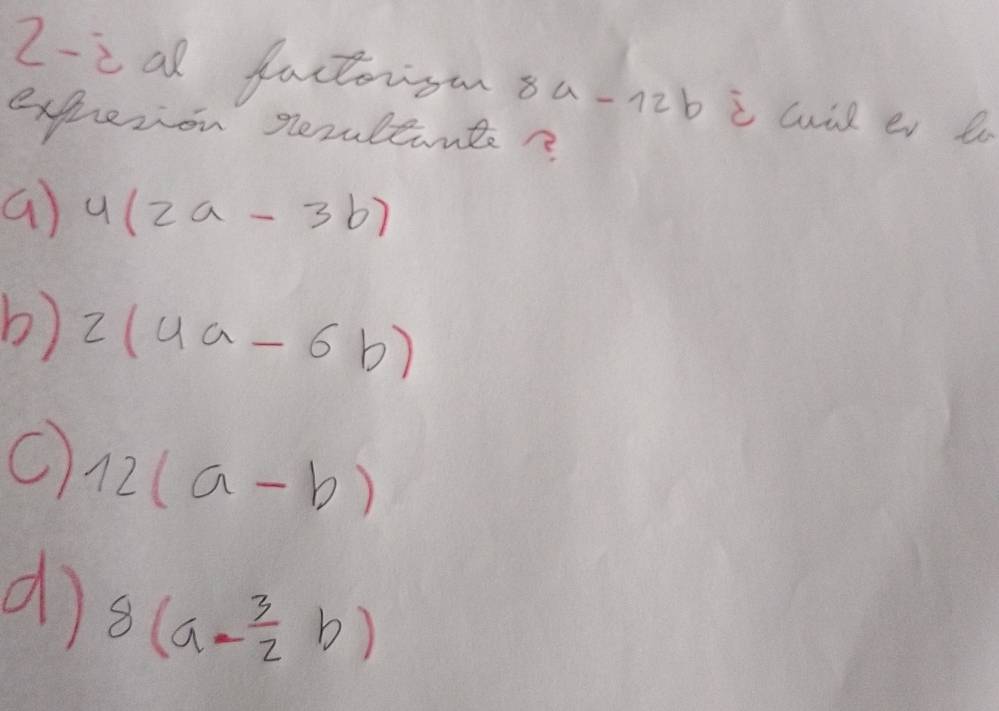 2-¿ al factorizar 8a - 12b ¿ cuál es la
expresión resultante ?
a) 4(2a - 3b)
b) 2(4a - 6b)
c) 12(a - b)
d) 8(a - 3/2 b)